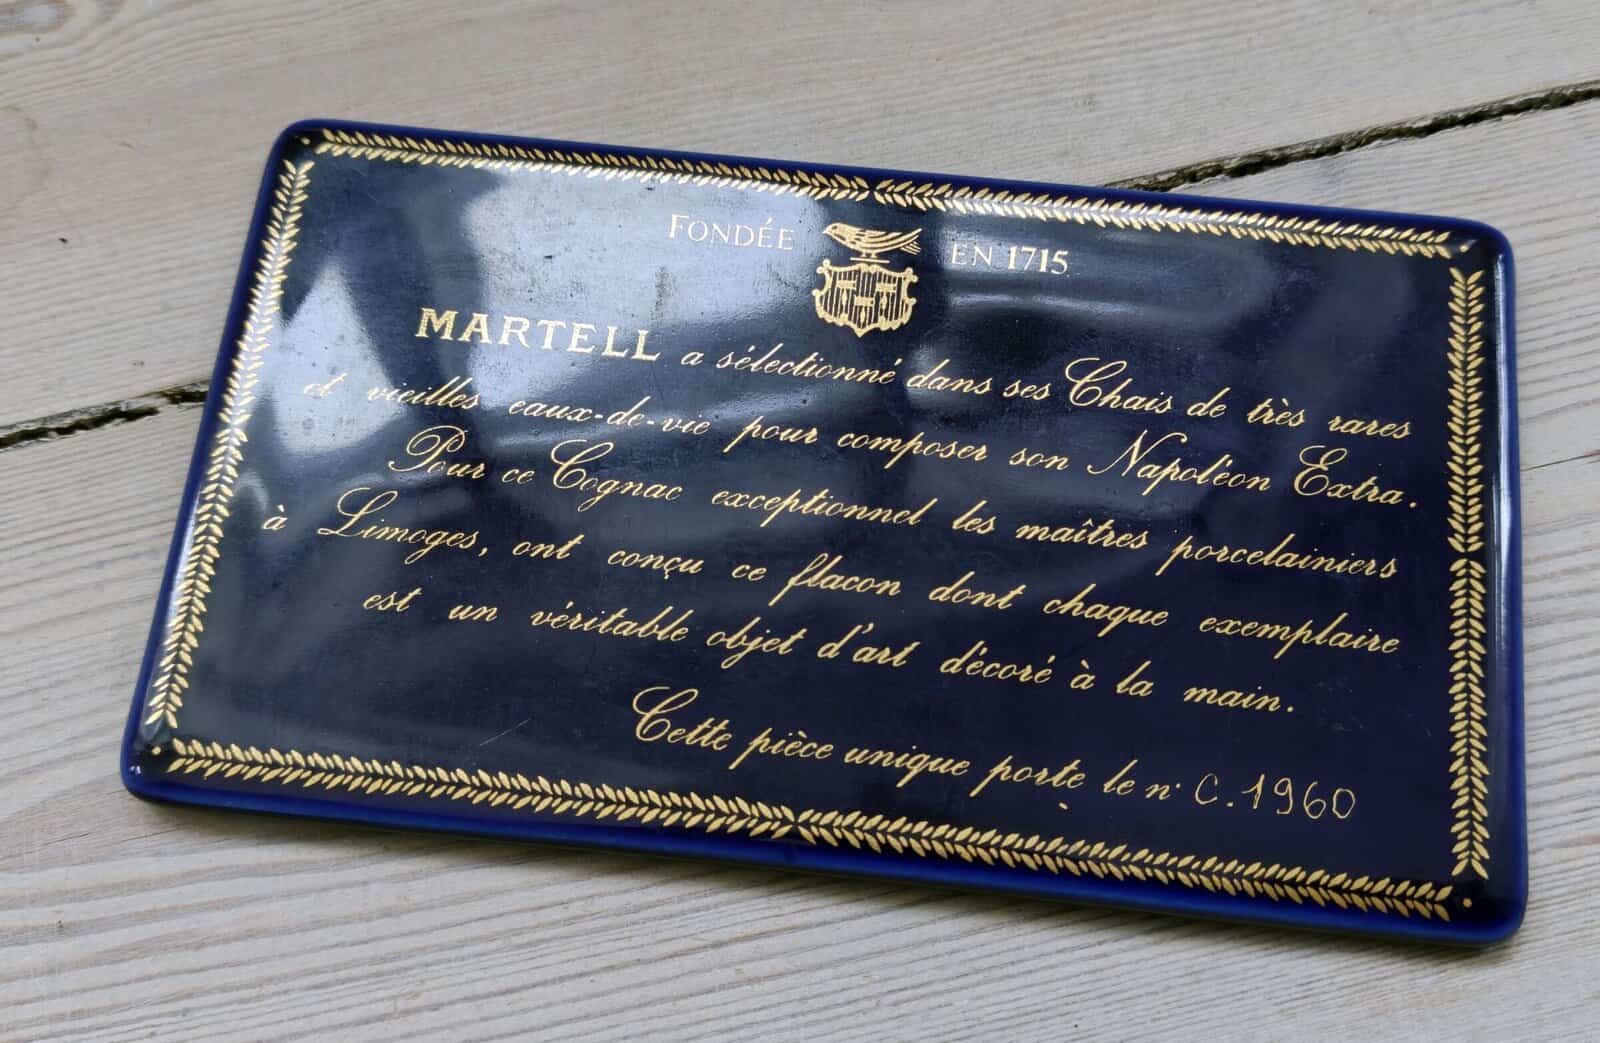 FONDÉE EN 1715
MARTELL a sélectionné dans ses Chais de très rares
et vieilles eaux-de-vie pour composer son Napoléon Extra.
Pour ce Cognac exceptionnel les maîtres porcelainiers
à Limoges, ont conçu ce flacon dont chaque exemplaire
est un véritable objet d'art décoré à la main.
Cette pièce unique porte le n° C.1960